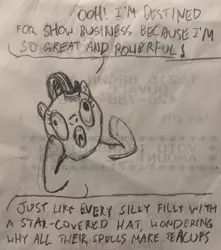 OOH! I'M DESTINED
FOR SHOW BUSINESS BECAUSE I'M
SO GREAT AND POWERFUL!
JUST LIKE EVERY SILLY FILLY WITH
A STAR-COVERED HAT, WONDERING
WHY ALL THEIR SPELLS MAKE TEACUPS